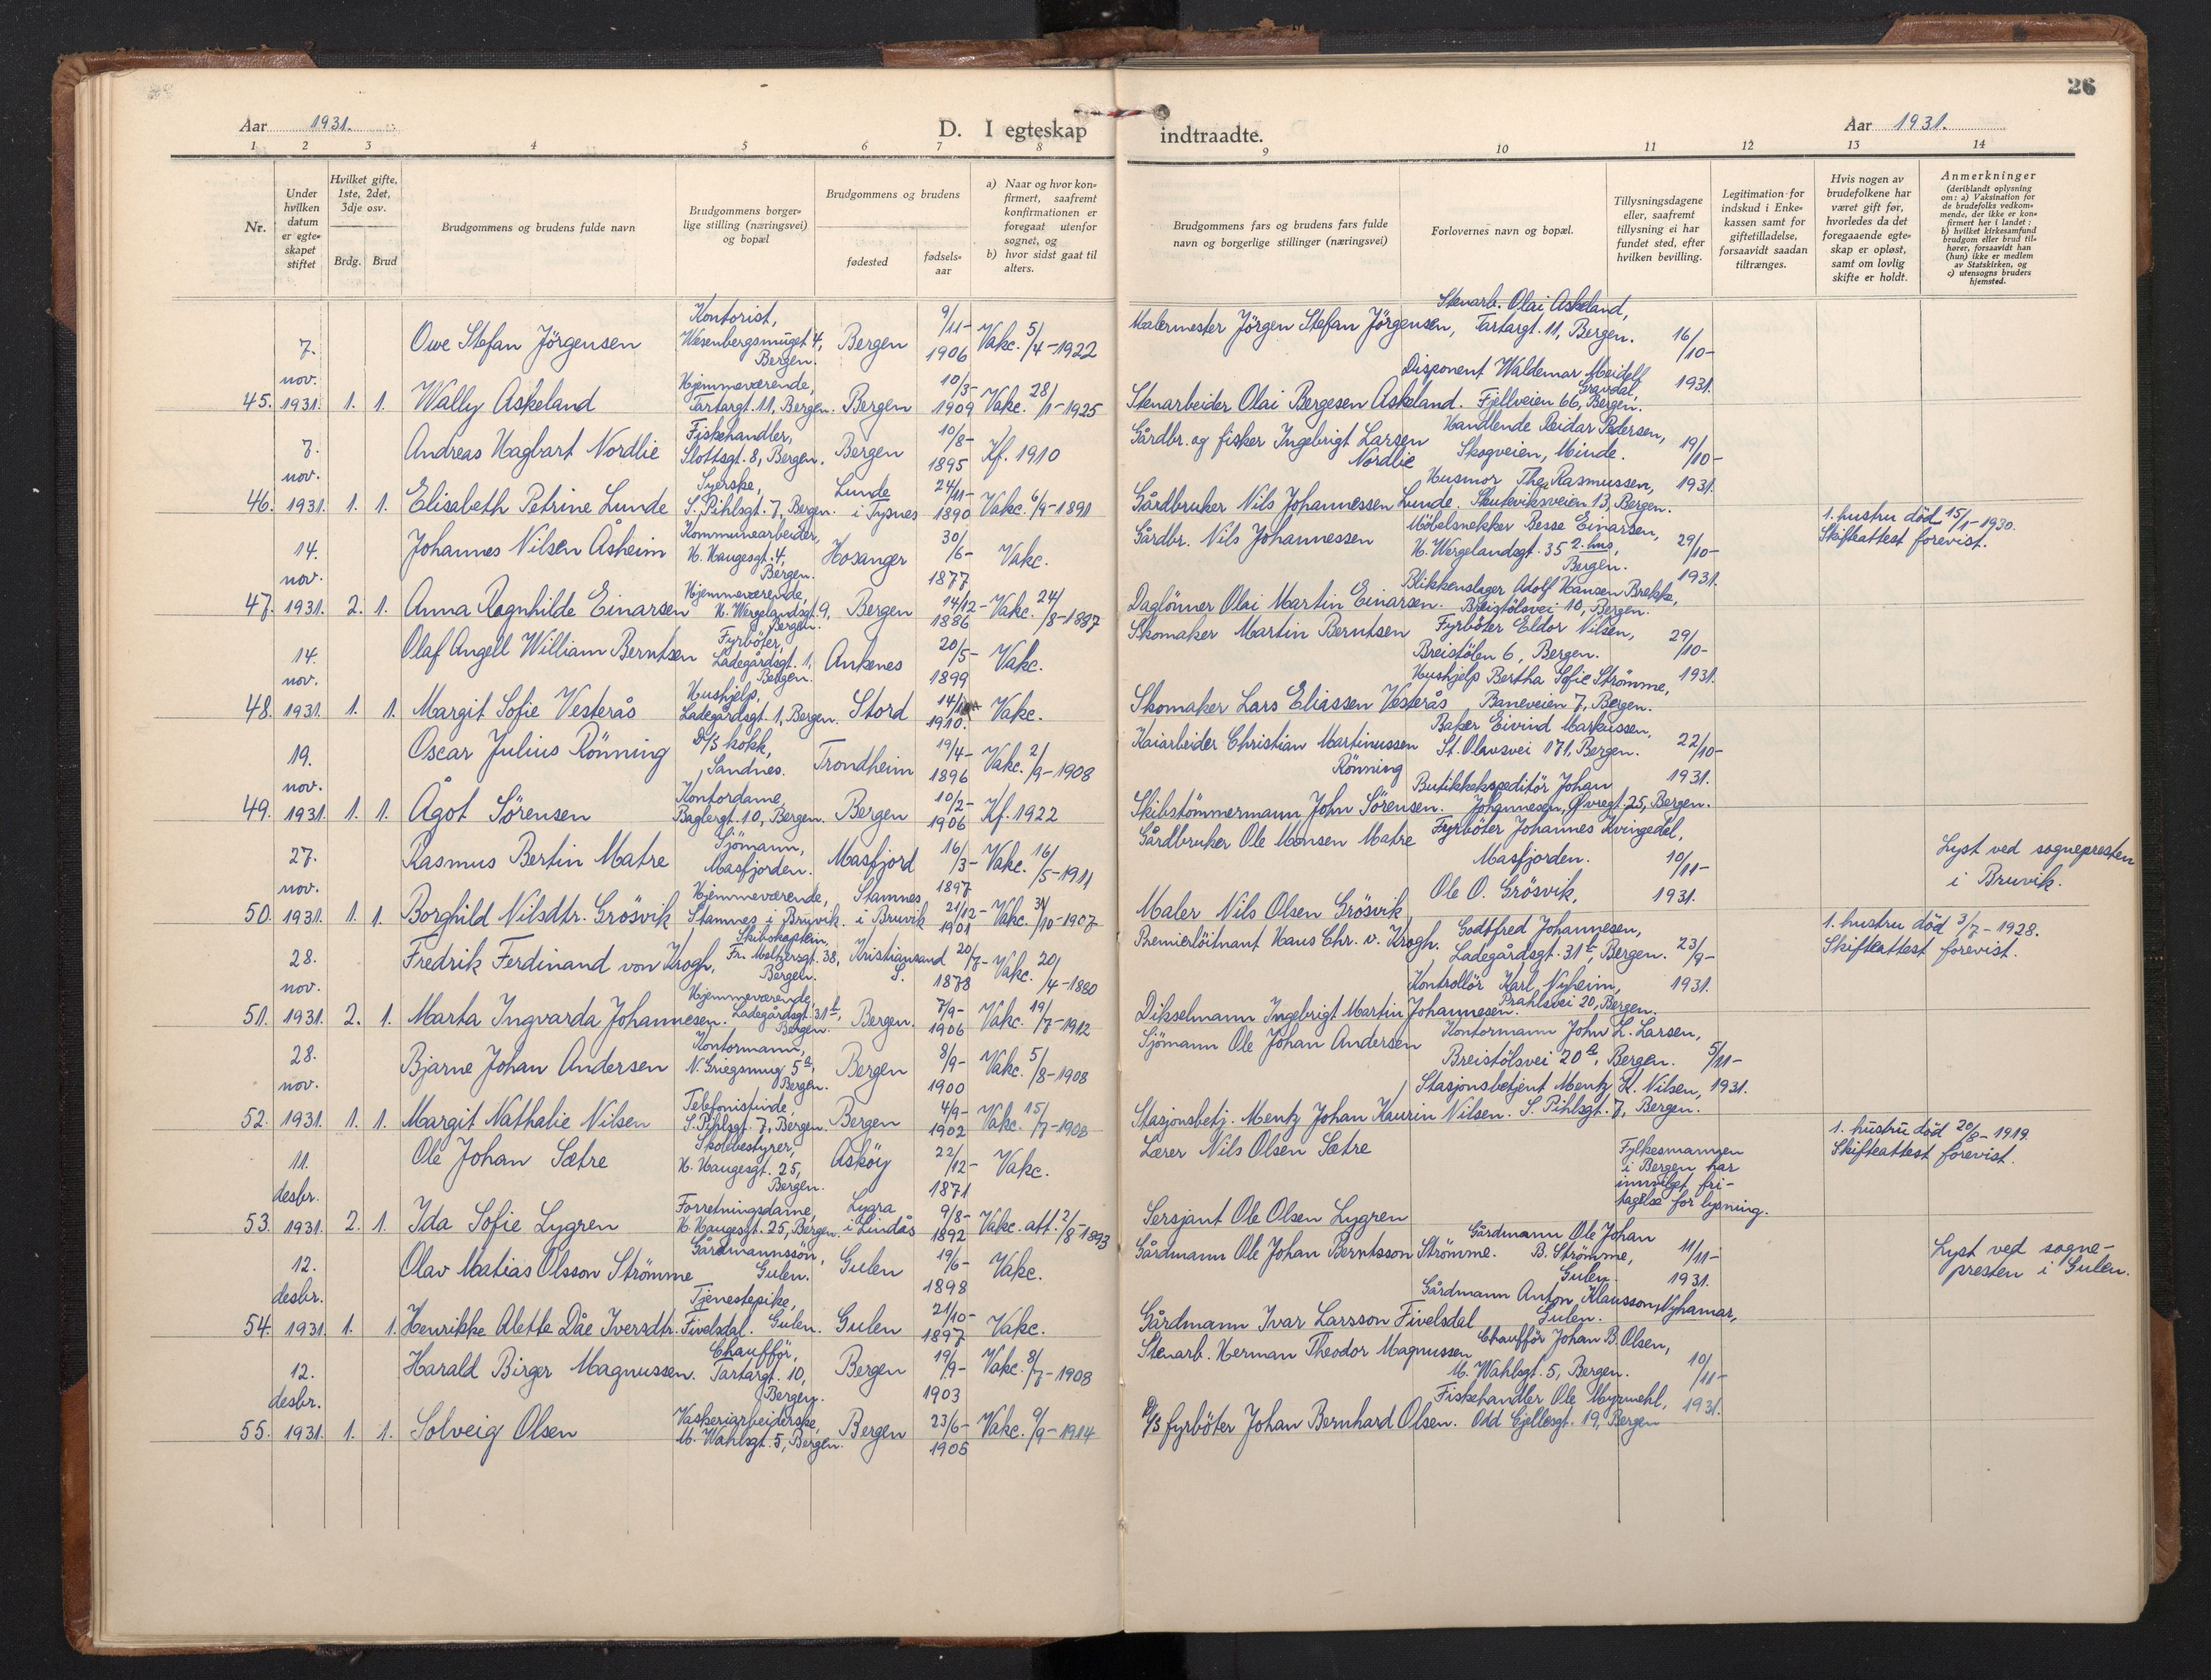 26
Aar 1931.
D. I egteskap indtraadte.
Aar 1931.
1 2 3 4 5 6 7 8 9 10 11 12 13 14
Nr.
Under hvilken datum er egte-skapet stiftet
Hvilket gifte, 1ste, 2det, 3dje osv.
Brdg. Brud
Brudgommens og brudens fulde navn
Brudgommens borger-lige stilling (næringsvei) og bopæl
Brudgommens og brudens
fødested
fødsels-aar
a) Naar og hvor kon-firmert, saafremt konfirmationen er foregaat utenfor sognet, og
b) hvor sidst gaat til alters.
Brudgommens fars og brudens fars fulde navn og borgerlige stillinger (næringsvei)
Forlovernes navn og bopæl.
Tillysningsdagene eller, saafremt tillysning ei har fundet sted, efter hvilken bevilling.
Legitimation for indskud i Enke-kassen samt for giftetilladelse, forsaavidt saadan tiltrænges.
Hvis nogen av brudefolkene har været gift før, hvorledes da det foregaaende egte-skap er opløst, samt om lovlig skifte er holdt.
Anmerkninger
(deriblandt oplysning om: a) Vaksination for de brudefolks vedkom-mende, der ikke er kon-firmert her i landet; b) hvilket kirkesamfund brudgom eller brud til-hører, forsaavidt han (hun) ikke er medlem av Statskirken, og c) utensogns bruders hjemsted.
45. 7. nov. 1931. 1. 1.
Owe Stefan Jörgensen
Kontorist, Wesenbergsmuget 4, Bergen.
Bergen 9/11-1906 Vakc. 5/4-1922
Malermester Jörgen Stefan Jörgensen,
Stenarb. Olai Askeland, Tartargt. 11, Bergen.
16/10-1931.
Wally Askeland
Hjemmeværende, Tartargt. 11, Bergen.
Bergen 10/3-1909 Vakc. 28/1-1925
Stenarbeider Olai Bergesen Askeland.
Disponent Waldemar Meidell Gravdal, Fjellveien 66, Bergen.
46. 7. nov. 1931. 1. 1.
Andreas Hagbart Nordlie
Fiskehandler, Slottsgt. 8, Bergen.
Bergen 10/8-1895 Kf. 1910
Gårdbr. og fisker Ingebrigt Larsen Nordlie
Handlende Reidar Pedersen, Skogveien, Minde.
19/10-1931.
Elisabeth Petrine Lunde
Syerske, S. Pihlsgt. 7, Bergen.
Lunde i Tysnes 24/11-1890 Vakc. 6/9-1891
Gårdbruker Nils Johannessen Lunde.
Husmor Thea Rasmussen, Skuteviksveien 13, Bergen.
47. 14. nov. 1931. 2. 1.
Johannes Nilsen Åsheim
Kommunearbeider, H. Haugesgt. 4, Bergen.
Hosanger 30/6-1877 Vakc.
Gårdbr. Nils Johannessen
Möbelsnekker Besse Einarsen, H. Wergelandsgt. 35 2. hus, Bergen.
29/10-1931.
1. hustru död 15/1-1930. Skifteattest forevist.
Anna Ragnhilde Einarsen
Hjemmeværende, H. Wergelandsgt. 9, Bergen.
Bergen 14/12-1886 Vakc. 24/8-1887
Daglönner Olai Martin Einarsen.
Blikkenslager Adolf Hansen Brekk, Breistölsvei 10, Bergen.
48. 14. nov. 1931. 1. 1.
Olaf Angell William Berntsen
Fyrböter, Ladegårdsgt. 1, Bergen.
Ankenes 20/5-1899 Vakc.
Skomaker Martin Berntsen
Fyrböter Eldor Nilsen, Breistölen 6, Bergen.
29/10-1931.
Margit Sofie Vesterås
Hushjelp, Ladegårdsgt. 1, Bergen.
Stord 1910. Vakc.
Skomaker Lars Eliassen Vesterås
Hushjelp Bertha Sofie Strömme, Baneveien 7, Bergen.
49. 19. nov. 1931. 1. 1.
Oscar Julius Rönning
D/S kokk, Sandnes.
Trondheim 19/4-1896 Vakc. 2/9-1908
Kaiarbeider Christian Martinussen Rönning
Baker Eivind Markussen, St. Olavsvei 171, Bergen.
22/10-1931.
Ågot Sörensen
Kontordame, Baglergt. 10, Bergen.
Bergen 10/2-1906 Kf. 1922
Skibstömmermann John Sörensen.
Butikkekspeditör Johan Johannesen, Øvregt. 25, Bergen.
50. 27. nov. 1931. 1. 1.
Rasmus Bertin Matre
Sjömann, Masfjorden.
Masfjord 16/3-1897 Vakc. 16/5-1911
Gårdbruker Ole Monsen Matre
Fyrböter Johannes Kvingedal, Masfjorden.
10/11-1931.
Lyst ved sognepresten i Bruvik.
Borghild Nilsdtr. Grösvik
Hjemmeværende, Stamnes i Bruvik.
Stamnes i Bruvik 21/12-1901 Vakc. 31/10-1907
Maler Nils Olsen Grösvik
Ole O. Grösvik,
51. 28. nov. 1931. 2. 1.
Fredrik Ferdinand von Krogh,
Skibskaptein, Fr. Meltzersgt. 38, Bergen.
Kristiansand S. 20/7-1878 Vakc. 20/4-1880
Premierlöitnant Hans Chr. v. Krogh.
Godtfred Johannesen, Ladegårdsgt. 31, Bergen.
23/9-1931.
1. hustru död 3/7-1928. Skifteattest forevist.
Marta Ingvarda Johannesen.
Hjemmeværende, Ladegårdsgt. 31, Bergen.
Bergen. 7/9-1906 Vakc. 19/7-1912
Dikselmann Ingebrigt Martin Johannesen.
Kontrollör Karl Nyheim, Prahlsvei 20, Bergen.
52. 28. nov. 1931. 1. 1.
Bjarne Johan Andersen
Kontormann, N. Griegsmug 5a, Bergen.
Bergen 8/9-1900 Vakc. 5/8-1908
Sjömann Ole Johan Andersen
Kontormann John L. Larsen, Breistölsvei 20, Bergen.
5/11-1931.
Margit Nathalie Nilsen
Telefonistinde, S. Pihlsgt. 7, Bergen.
Bergen 4/9-1902 Vakc. 15/7-1908
Stasjonsbetj. Mentz Johan Kaurin Nilsen.
Stasjonsbetjent Mentz K. Nilsen, S. Pihlsgt. 7, Bergen.
53. 11. desbr. 1931. 2. 1.
Ole Johan Sætre
Skolebestyrer, H. Haugesgt. 25, Bergen.
Asköy 22/12-1871 Vakc.
Lærer Nils Olsen Sætre
Fylkesmannen i Bergen har innvilget fri-tagelse for lysning.
1. hustru död 20/8-1919. Skifteattest forevist.
Ida Sofie Lygren
Forretningsdame, H. Haugesgt. 25, Bergen.
Lygra i Lindås 9/8-1892 Vakc. att. 2/8-1893
Sersjant Ole Olsen Lygren
54. 12. desbr. 1931. 1. 1.
Olav Matias Olsson Strömme
Gårdmannssön, Gulen.
Gulen 19/6-1898 Vakc.
Gårdmann Ole Johan Berntsson Strömme.
Gårdmann Ole Johan B. Strömme, Gulen.
11/11-1931.
Lyst ved sogne-presten i Gulen.
Henrikke Alette Dåe Iversdtr. Fivelsdal.
Tjenestepike, Gulen.
Gulen 21/10-1897 Vakc.
Gårdmann Ivar Larsson Fivelsdal
Gårdmann Anton Klausson Nyhamar, Gulen.
55. 12. desbr. 1931. 1. 1.
Harald Birger Magnussen.
Chaufför, Tartargt. 10, Bergen.
Bergen 19/9-1903 Vakc. 8/7-1908
Stenarb. Herman Theodor Magnussen
Chaufför Johan B. Olsen, M. Wahlsgt. 5, Bergen.
10/11-1931.
Solveig Olsen
Vaskeriarbeiderske, M. Wahlsgt. 5, Bergen.
Bergen 23/6-1905 Vakc. 9/9-1914
D/S fyrböter Johan Bernhard Olsen.
Fiskehandler Ole Myrmehl, Odd Gjellesgt. 19, Bergen